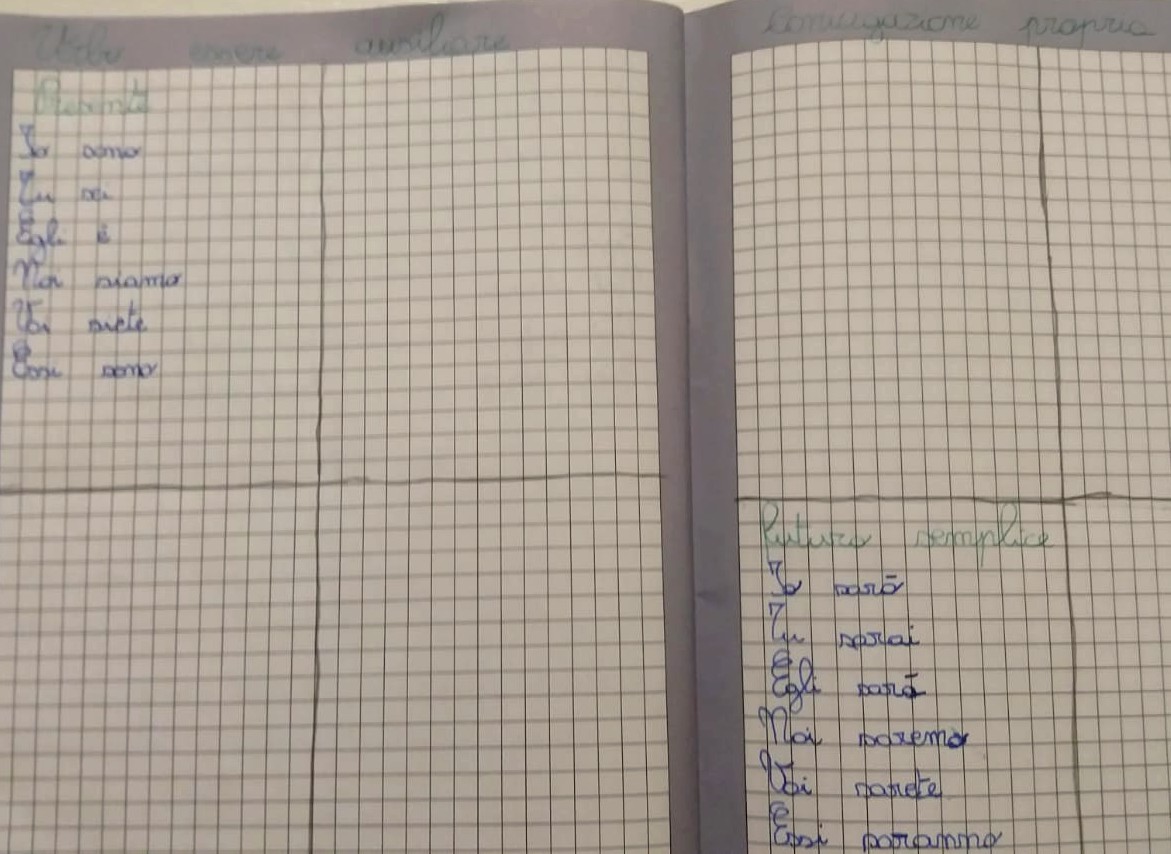 Verbo essere ausiliare
Presente
Io sono
Tu sei
Egli è
Noi siamo
Voi siete
Essi sono
Coniugazione propria
Futuro semplice
Io sarò
Tu sarai
Egli sarà
Noi saremo
Voi sarete
Essi saranno